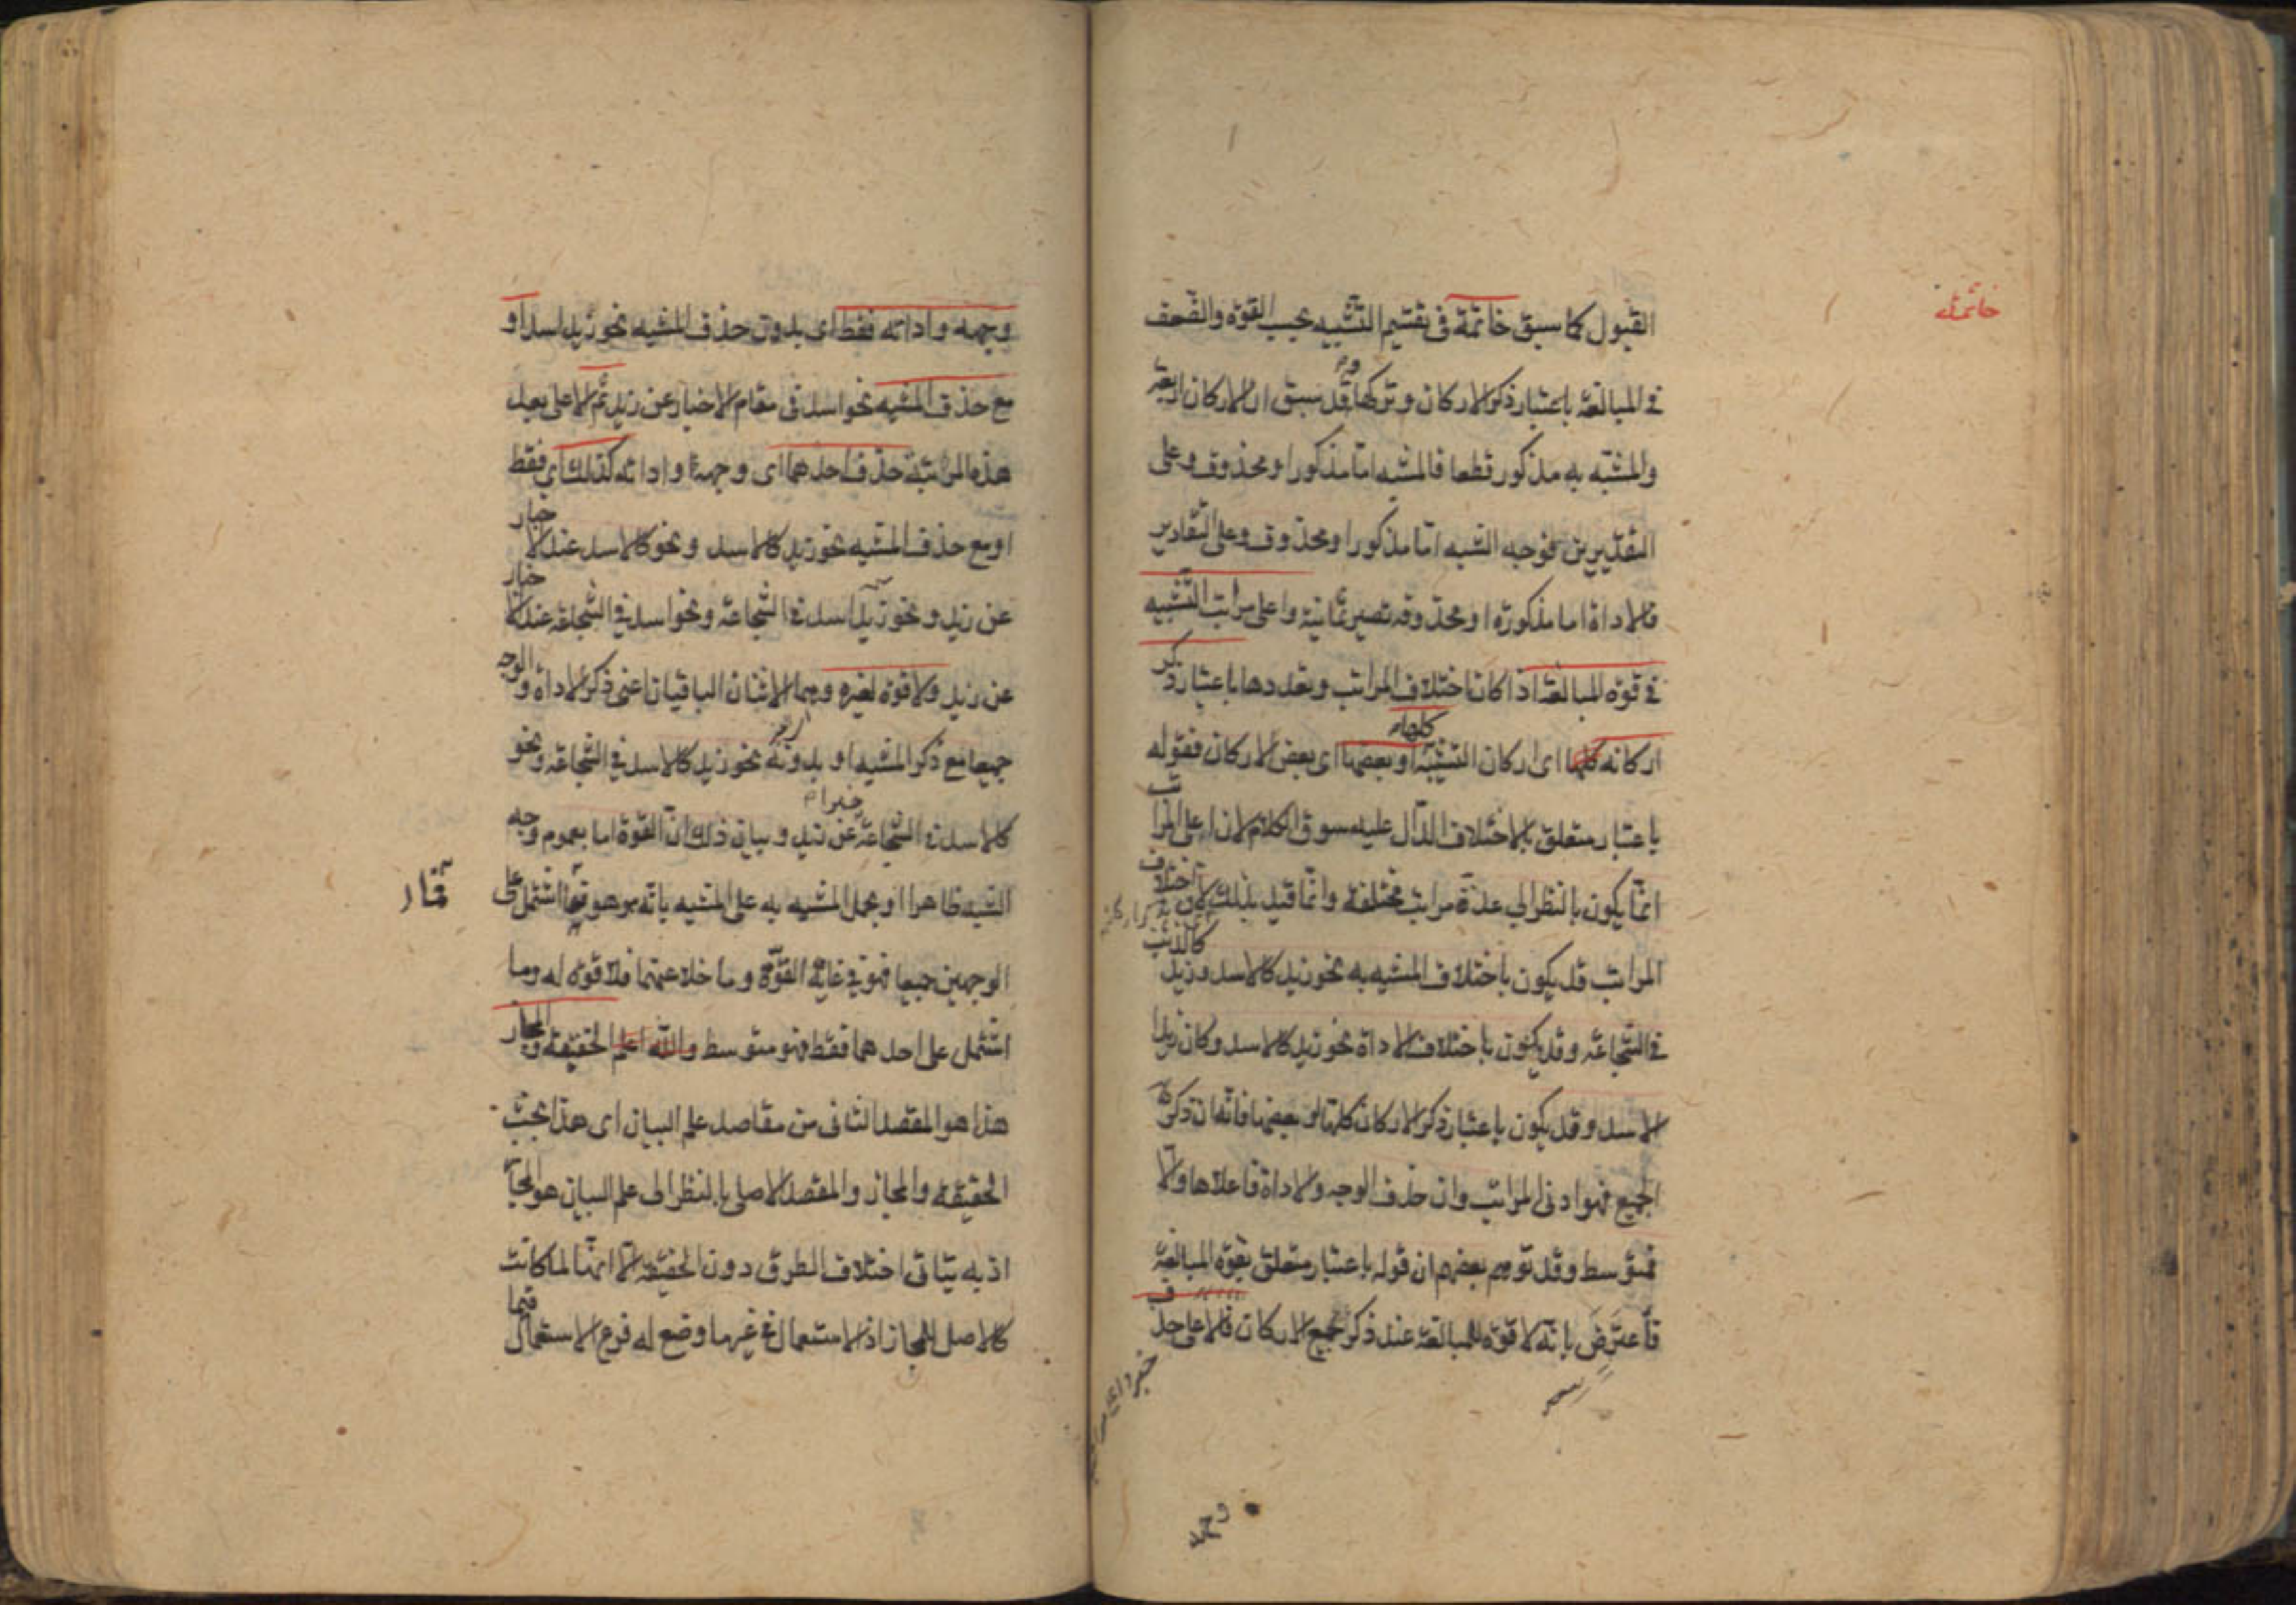 خاتمة
القبول كما سبق خاتمة في تقسيم التشبيه بحسب القوة والضعف
في المبالغة باعتبار ذكر الاركان وتركها وقد سبق ان الاركان اربعة
والمشبه به مذكور قطعا فالمشبه اما مذكور او محذوف وعلى
التقديرين فوجه الشبه اما مذكور او محذوف وعلى التقادير
فالاداة اما مذكورة او محذوفه تصير ثمانية واعلى مراتب التشبيه
في قوة المبالغة اذا كان اختلاف المراتب وتعددها باعتبار ذكر
اركانه كلها اى اركان التشبيه او بعضها اى بعض الاركان فقوله
باعتبار متعلق بالاختلاف الدال عليه سوق الكلام لان اعلى المراتب
انما يكون بالنظر الى عدة مراتب مختلفة وانما قيد بذلك لان اختلاف
المراتب قد يكون باختلاف المشبه به نحو زيد كالاسد وزيد كالذئب
في الشجاعة وقد يكون باختلاف الاداة نحو زيد كالاسد وكان زيدا
الاسد وقد يكون باعتبار ذكر الاركان كلها او بعضها فانه ان ذكر
الجميع فهو ادنى المراتب وان حذف الوجه والاداة فاعلاها والا
فمتوسط وقد توهم بعضهم ان قوله باعتبار متعلق بقوة المبالغة
فاعترض بانه لا قوة للمبالغة عند ذكر جميع الاركان فالاعلى حذف
وجهه
وجهه واداته فقط اى بدون حذف المشبه نحو زيد اسد او
مع حذف المشبه نحو اسد في مقام الاخبار عن زيد ثم الاعلى بعد
هذه المرتبة حذف احدهما اى وجهه او اداته كذلك اى فقط
او مع حذف المشبه نحو زيد كالاسد ونحو كالاسد عند الاخبار
عن زيد ونحو زيد اسد في الشجاعة ونحو اسد في الشجاعة عند الاخبار
عن زيد ولا قوة لغيره وهما الاثنان الباقيان اعنى ذكر الاداة والوجه
جميعا مع ذكر المشبه او بدونه نحو زيد كالاسد في الشجاعة ونحو
كالاسد في الشجاعة خبرا عن زيد وبيان ذلك ان القوة اما بعموم وجه
الشبه ظاهرا او بحمل المشبه به على المشبه بانه هو هو فما اشتمل على
الوجهين جميعا فهو في غاية القوة وما خلا عنهما فلا قوة له وما
اشتمل على احدهما فقط فهو متوسط والله اعلم الحقيقة والمجاز
هذا هو المقصد الثاني من مقاصد علم البيان اى هذا بحث
الحقيقة والمجاز والمقصد الاصلى بالنظر الى علم البيان هو المجاز
اذ به يتاتى اختلاف الطرق دون الحقيقة الا انها لما كانت
كالاصل للمجاز اذ الاستعمال في غير ما وضع له فرع الاستعمال فيما